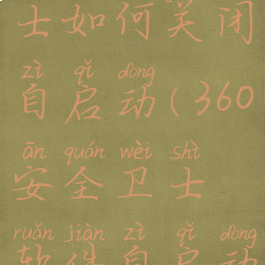 士如何关闭
zì qǐ dòng
自启动(360
ān quán wèi shì
安全卫士
ruǎn jiàn zì qǐ dòng
软件自启动